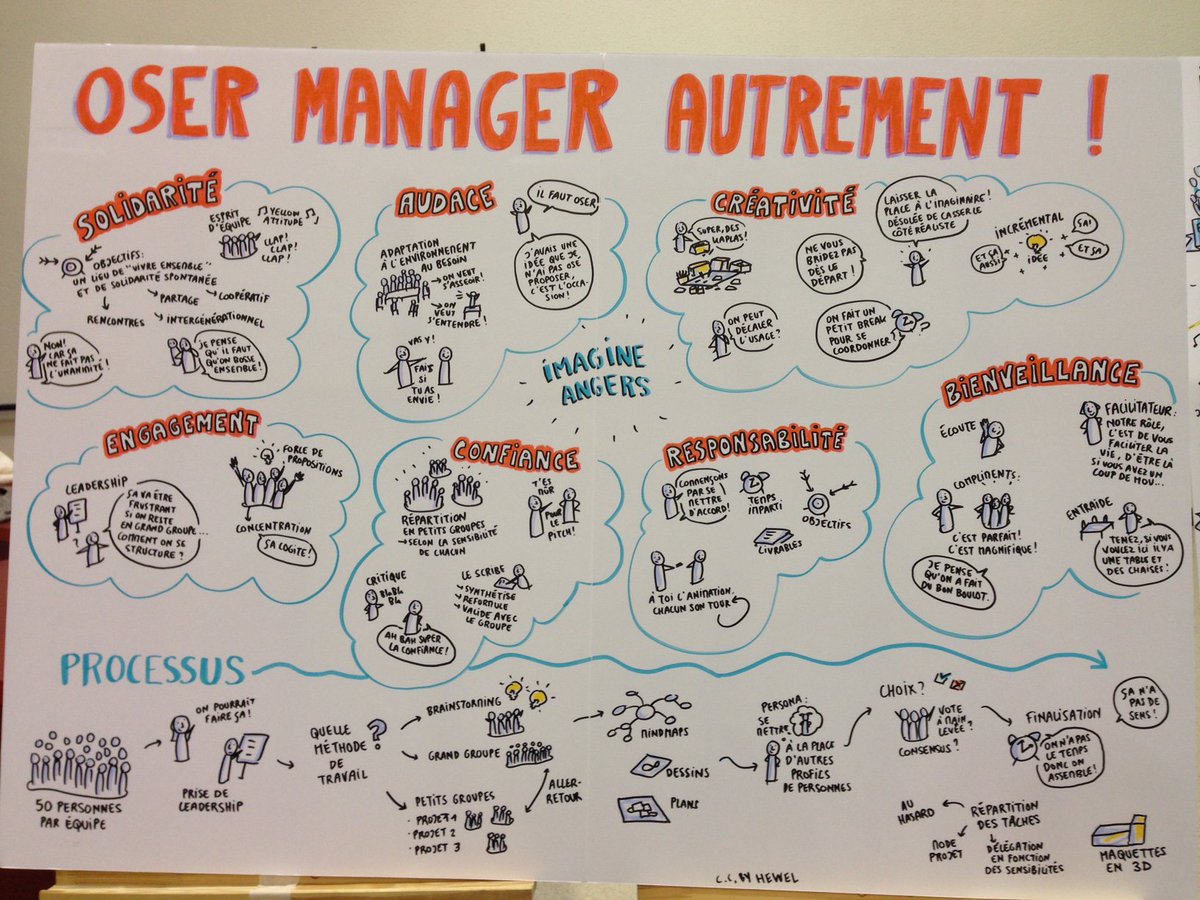 OSER MANAGER AUTREMENT !
SOLIDARITÉ
ESPRIT
D'ÉQUIPE
YELLOW
ATTITUDE
CLAP!
CLAP!
CLAP!
OBJECTIFS:
UN LIEU DE "VIVRE ENSEMBLE"
ET DE SOLIDARITÉ SPONTANÉE
RENCONTRES
PARTAGE
COOPÉRATIF
INTERGÉNÉRATIONNEL
NON!
CAR ÇA
NE FAIT PAS
L'UNANIMITÉ!
JE PENSE
QU'IL FAUT
QU'ON BOSSE
ENSEMBLE!
AUDACE
IL FAUT OSER!
ADAPTATION
À L'ENVIRONNEMENT
AU BESOIN
ON VEUT
S'ASSEOIR!
ON
VEUT
S'ENTENDRE!
J'AVAIS UNE
IDÉE QUE JE
N'AI PAS OSÉ
PROPOSER,
C'EST L'OCCA-
SION!
VAS Y!
FAIS
SI
TU AS
ENVIE!
CRÉATIVITÉ
SUPER, DES
KAPLAS!
NE VOUS
BRIDEZ PAS
DÈS LE
DÉPART!
LAISSER LA
PLACE À L'IMAGINAIRE!
DÉSOLÉE DE CASSER LE
CÔTÉ RÉALISTE
INCRÉMENTAL
ÇA!
ET ÇA
ET ÇA
AUSSI
IDÉE
ON PEUT
DÉCALER
L'USAGE?
ON FAIT UN
PETIT BREAK
POUR SE
COORDONNER?
?
IMAGINE
ANGERS
ENGAGEMENT
LEADERSHIP
ÇA VA ÊTRE
FRUSTRANT
SI ON RESTE
EN GRAND GROUPE...
COMMENT ON SE
STRUCTURE?
?
FORCE DE
PROPOSITIONS
CONCENTRATION
ÇA COGITE!
CONFIANCE
RÉPARTITION
EN PETITS GROUPES
SELON LA SENSIBILITÉ
DE CHACUN
T'ES
MÛR
POUR
LE
PITCH!
CRITIQUE
BLA BLA
BLA
AH BAH SUPER
LA CONFIANCE!
LE SCRIBE
SYNTHÉTISE
REFORMULE
VALIDE AVEC
LE GROUPE
RESPONSABILITÉ
COMMENÇONS
PAR SE
METTRE
D'ACCORD!
TEMPS
IMPARTI
OBJECTIFS
LIVRABLES
À TOI L'ANIMATION.
CHACUN SON TOUR
BIENVEILLANCE
ÉCOUTE
FACILITATEUR:
NOTRE RÔLE,
C'EST DE VOUS
FACILITER LA
VIE, D'ÊTRE LÀ
SI VOUS AVEZ UN
COUP DE MOU...
COMPLIMENTS:
C'EST PARFAIT!
C'EST MAGNIFIQUE!
JE PENSE
QU'ON A FAIT
DU BON BOULOT.
ENTRAIDE
TENEZ, SI VOUS
VOULEZ ICI IL Y A
UNE TABLE ET
DES CHAISES!
PROCESSUS
50 PERSONNES
PAR ÉQUIPE
ON POURRAIT
FAIRE ÇA!
PRISE DE
LEADERSHIP
QUELLE
MÉTHODE ?
DE
TRAVAIL
BRAINSTORMING
GRAND GROUPE
PETITS GROUPES
· PROJET 1
· PROJET 2
· PROJET 3
ALLER-
RETOUR
MINDMAPS
DESSINS
PLANS
PERSONA:
SE
METTRE
À LA PLACE
D'AUTRES
PROFILS
DE PERSONNES
CHOIX?
VOTE
À MAIN
LEVÉE?
CONSENSUS?
FINALISATION
ON N'A PAS
LE TEMPS
DONC ON
ASSEMBLE!
ÇA N'A
PAS DE
SENS!
RÉPARTITION
DES TÂCHES
AU
HASARD
MODE
PROJET
DÉLÉGATION
EN FONCTION
DES SENSIBILITÉS
MAQUETTES
EN 3D
C.C. BY HEWEL